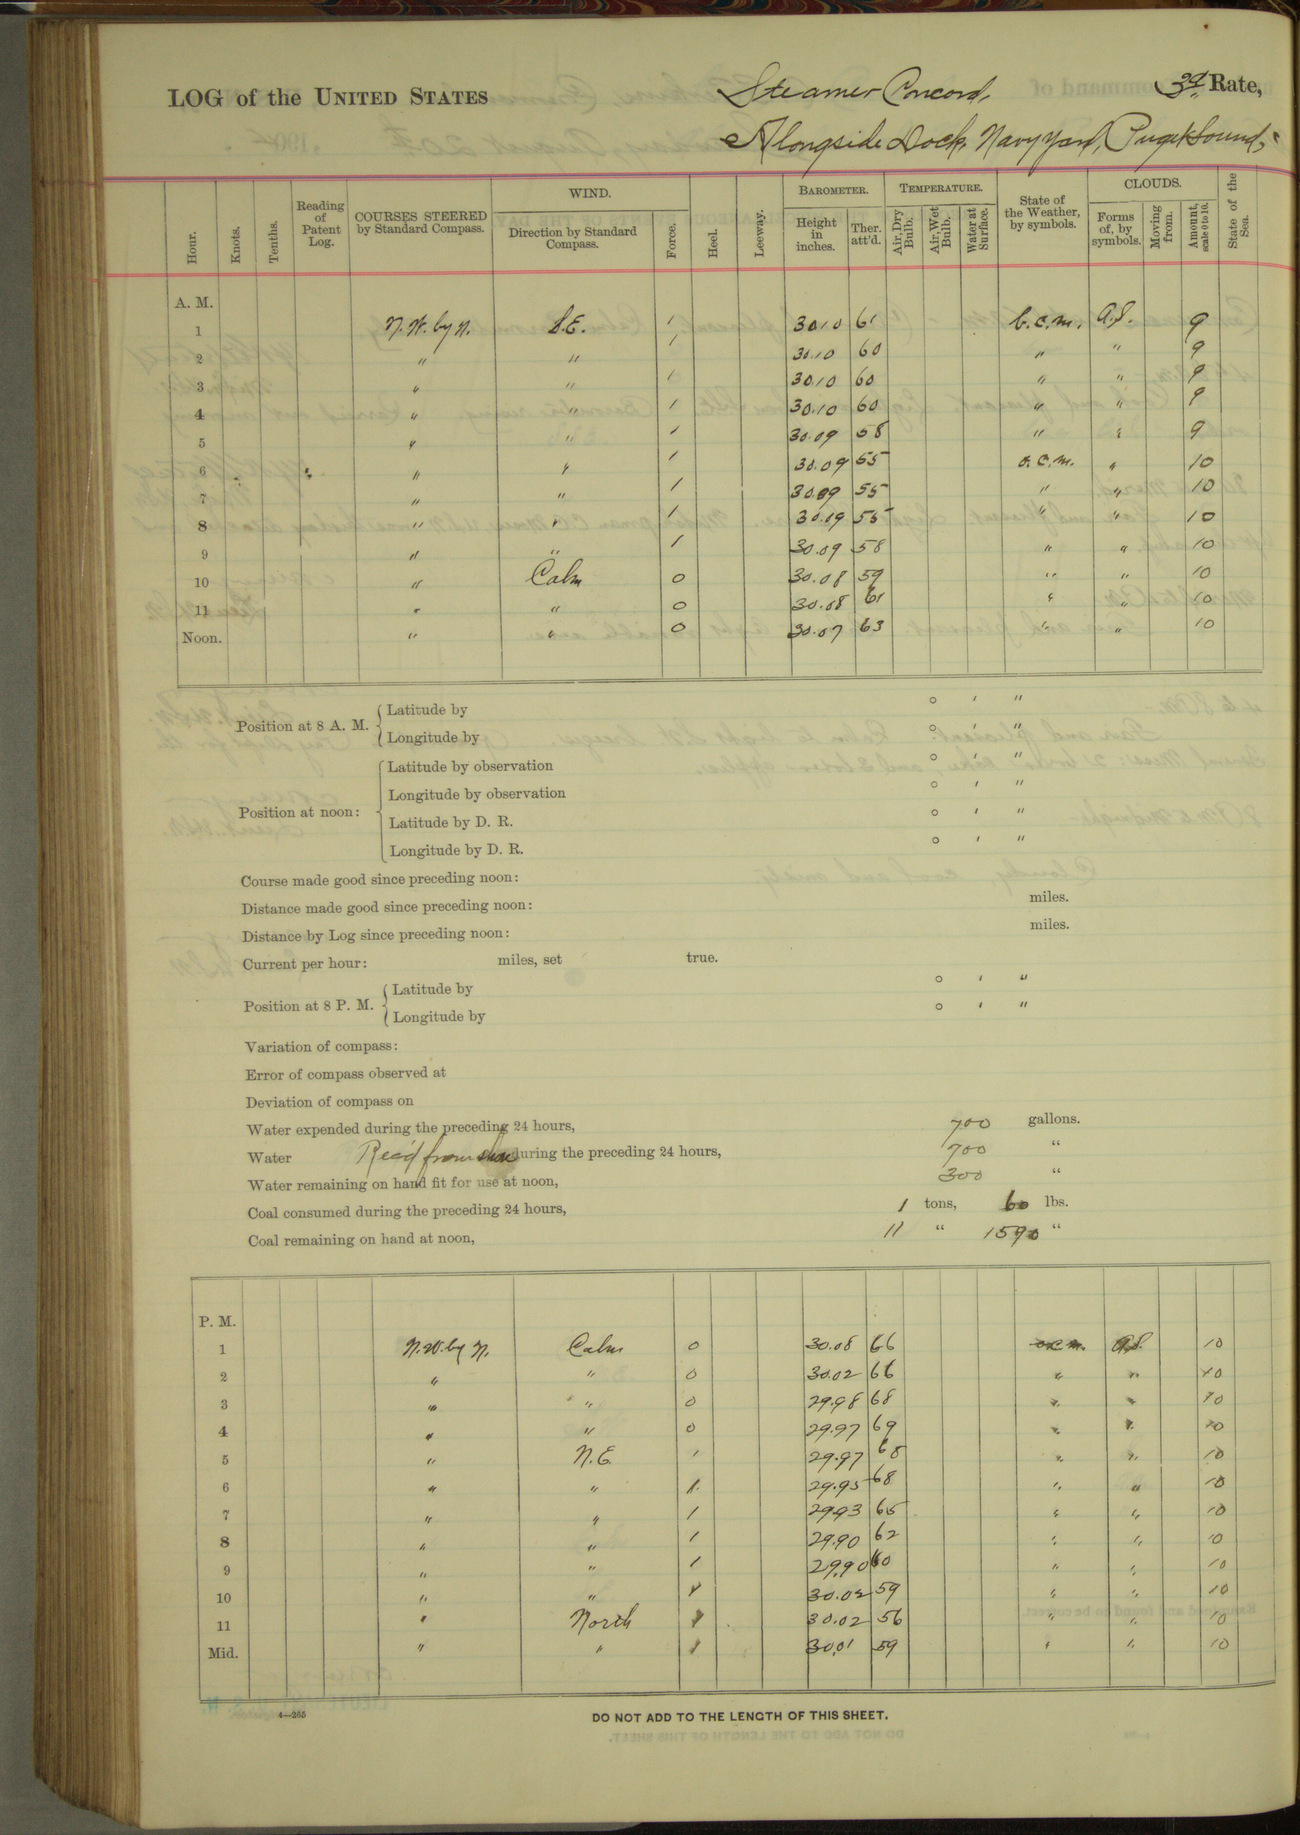 LOG of the UNITED STATES Steamer Concord, 3d Rate,
Alongside Dock, Navy Yard, Puget Sound,
Hour. Knots. Tenths. Reading of Patent Log. COURSES STEERED by Standard Compass. WIND. Direction by Standard Compass. Force. Heel. Leeway. BAROMETER. Height in inches. Ther. att'd. TEMPERATURE. Air, Dry Bulb. Air, Wet Bulb. Water at Surface. State of the Weather, by symbols. CLOUDS. Forms of, by symbols. Moving from. Amount, scale 0 to 10. State of the Sea.
A. M.
1 N.W. by N. S.E. 1 30.10 61 b.c.m. A.S. 9
2 " " 1 30.10 60 " " 9
3 " " 1 30.10 60 " " 9
4 " " 1 30.10 60 " " 9
5 " " 1 30.09 58 " " 9
6 " " 1 30.09 55 o.c.m. " 10
7 " " 1 30.09 55 " " 10
8 " " 1 30.09 55 " " 10
9 " " 1 30.09 58 " " 10
10 " Calm 0 30.08 59 " " 10
11 " " 0 30.08 61 " " 10
Noon. " " 0 30.07 63 " " 10
Position at 8 A. M. Latitude by ° ' "
Longitude by ° ' "
Position at noon: Latitude by observation ° ' "
Longitude by observation ° ' "
Latitude by D. R. ° ' "
Longitude by D. R. ° ' "
Course made good since preceding noon:
Distance made good since preceding noon: miles.
Distance by Log since preceding noon: miles.
Current per hour: miles, set true.
Position at 8 P. M. Latitude by ° ' "
Longitude by ° ' "
Variation of compass:
Error of compass observed at
Deviation of compass on
Water expended during the preceding 24 hours, 700 gallons.
Water Rec'd from shore during the preceding 24 hours, 700 "
Water remaining on hand fit for use at noon, 300 "
Coal consumed during the preceding 24 hours, 1 tons, 60 lbs.
Coal remaining on hand at noon, 11 " 1590 "
P. M.
1 N.W. by N. Calm 0 30.08 66 o.c.m. A.S. 10
2 " " 0 30.02 66 " " 10
3 " " 0 29.98 68 " " 10
4 " " 0 29.97 69 " " 10
5 " N.E. 1 29.97 68 " " 10
6 " " 1 29.95 68 " " 10
7 " " 1 29.93 65 " " 10
8 " " 1 29.90 62 " " 10
9 " " 1 29.90 60 " " 10
10 " " 1 30.02 59 " " 10
11 " North 1 30.02 56 " " 10
Mid. " " 1 30.01 59 " " 10
4—265 DO NOT ADD TO THE LENGTH OF THIS SHEET.